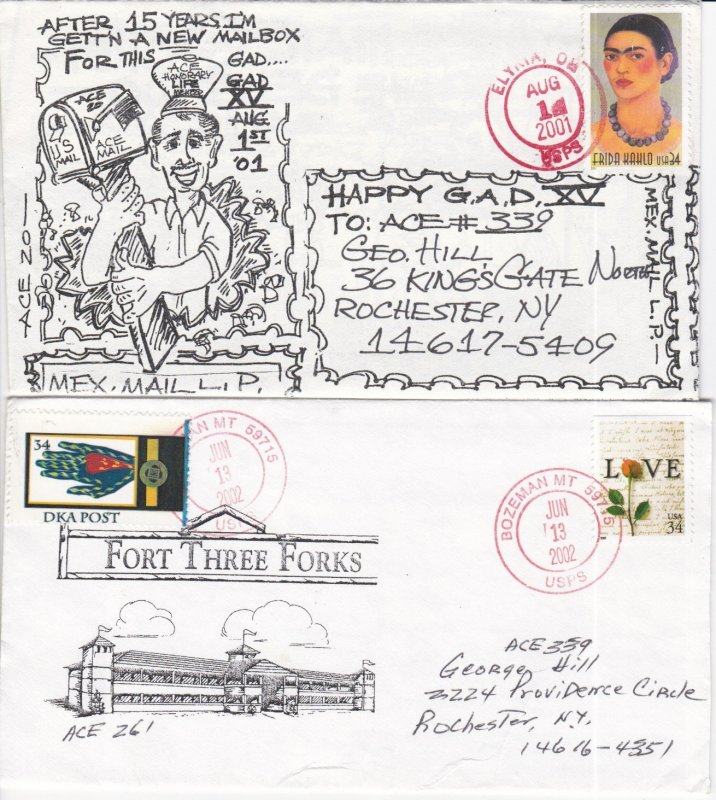 AFTER 15 YEARS I'M
GETT'N A NEW MAILBOX
FOR THIS GAD....
GAD
XV
AUG
1ST
'01
ACE
HONORARY
LIFE
MEMBER
ACE
20
U.S
MAIL
ACE
MAIL
ACE 20
MEX. MAIL L.P.
ELYRIA, OH
AUG
2001
USPS
FRIDA KAHLO USA 34
HAPPY G.A.D. XV
TO: ACE # 339
GEO. HILL
36 KINGSGATE NORTH
ROCHESTER, NY
14617-5409
MEX. MAIL L.P.
34
DKA POST
BOZEMAN MT 59715
JUN
13
2002
USPS
FORT THREE FORKS
ACE 261
BOZEMAN MT 59715
JUN
13
2002
USPS
LOVE
USA
34
ACE 339
George Hill
3224 Providence Circle
Rochester, N.Y.
14616-4351